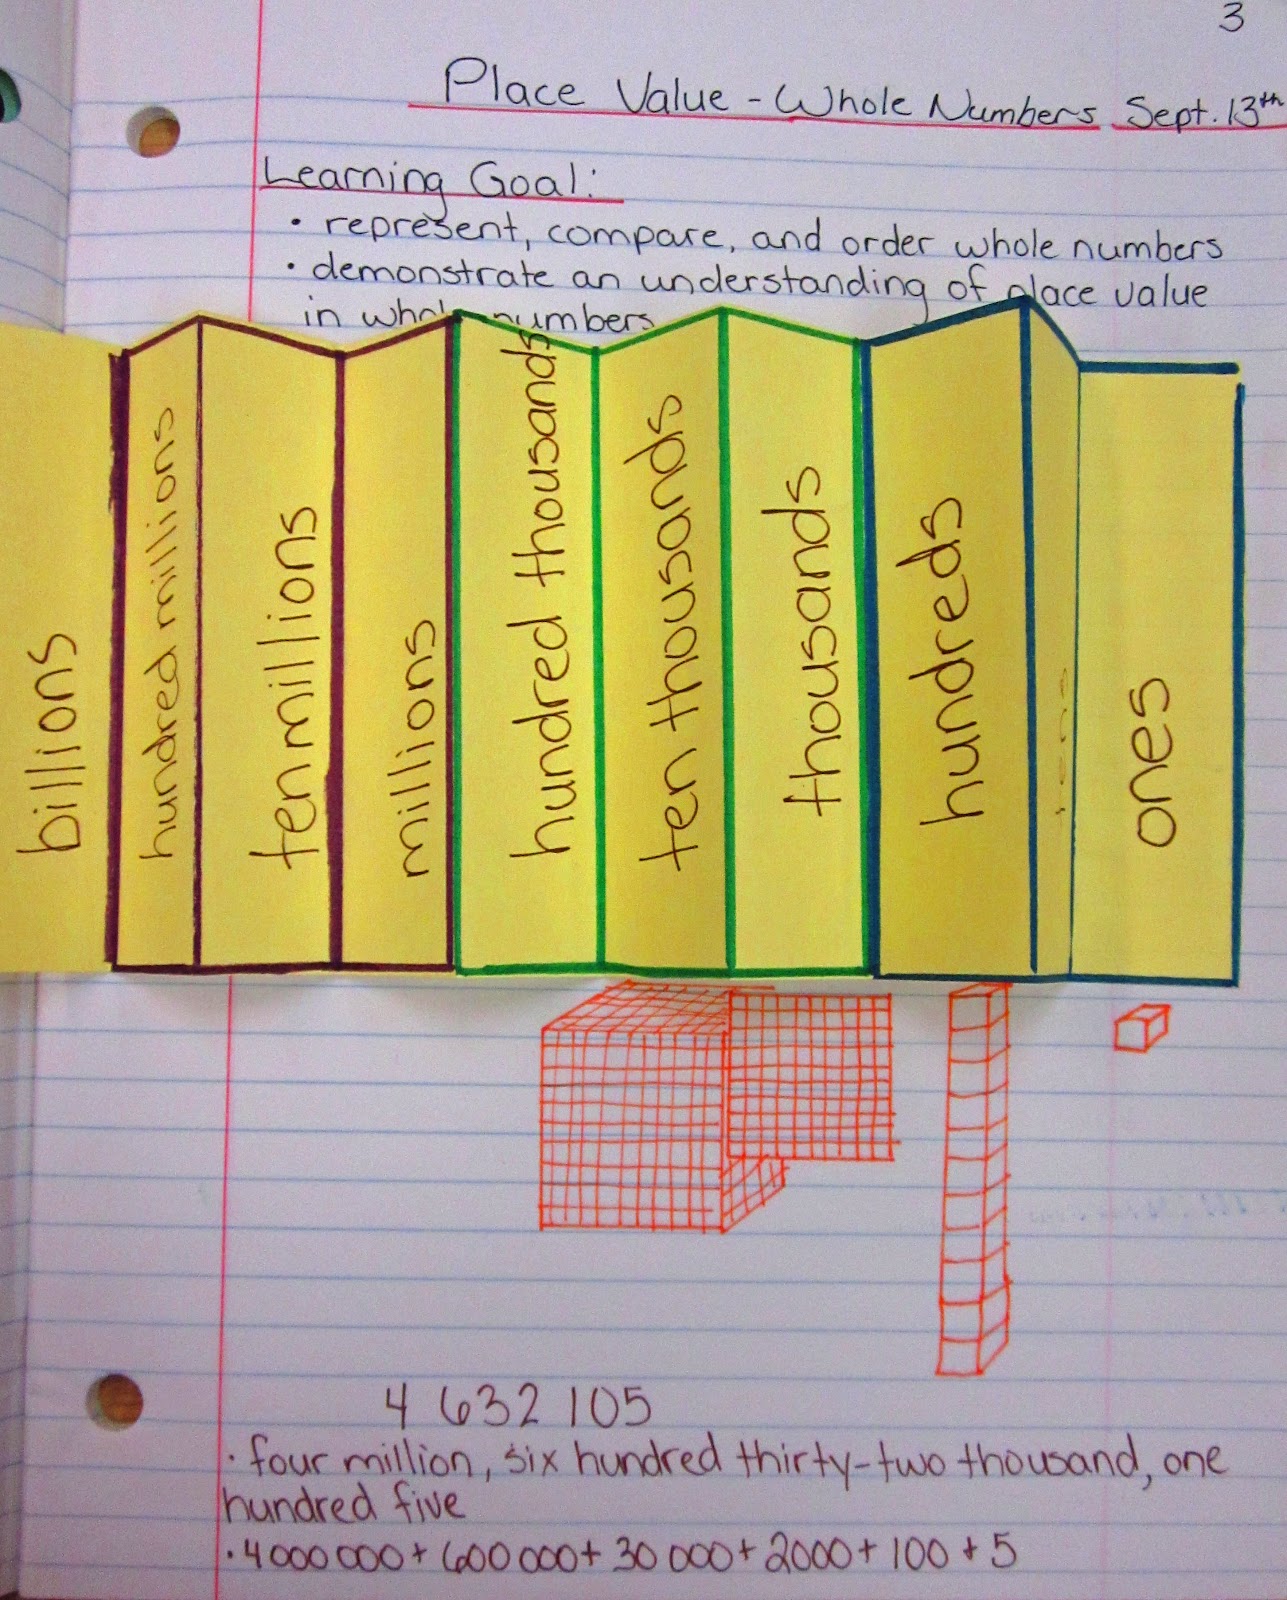 3
Place Value - Whole Numbers Sept. 13th
Learning Goal:
• represent, compare, and order whole numbers
• demonstrate an understanding of place value
in whole numbers
billions
hundred millions
ten millions
millions
hundred thousands
ten thousands
thousands
hundreds
tens
ones
4 632 105
• four million, six hundred thirty-two thousand, one
hundred five
• 4 000 000 + 600 000 + 30 000 + 2000 + 100 + 5